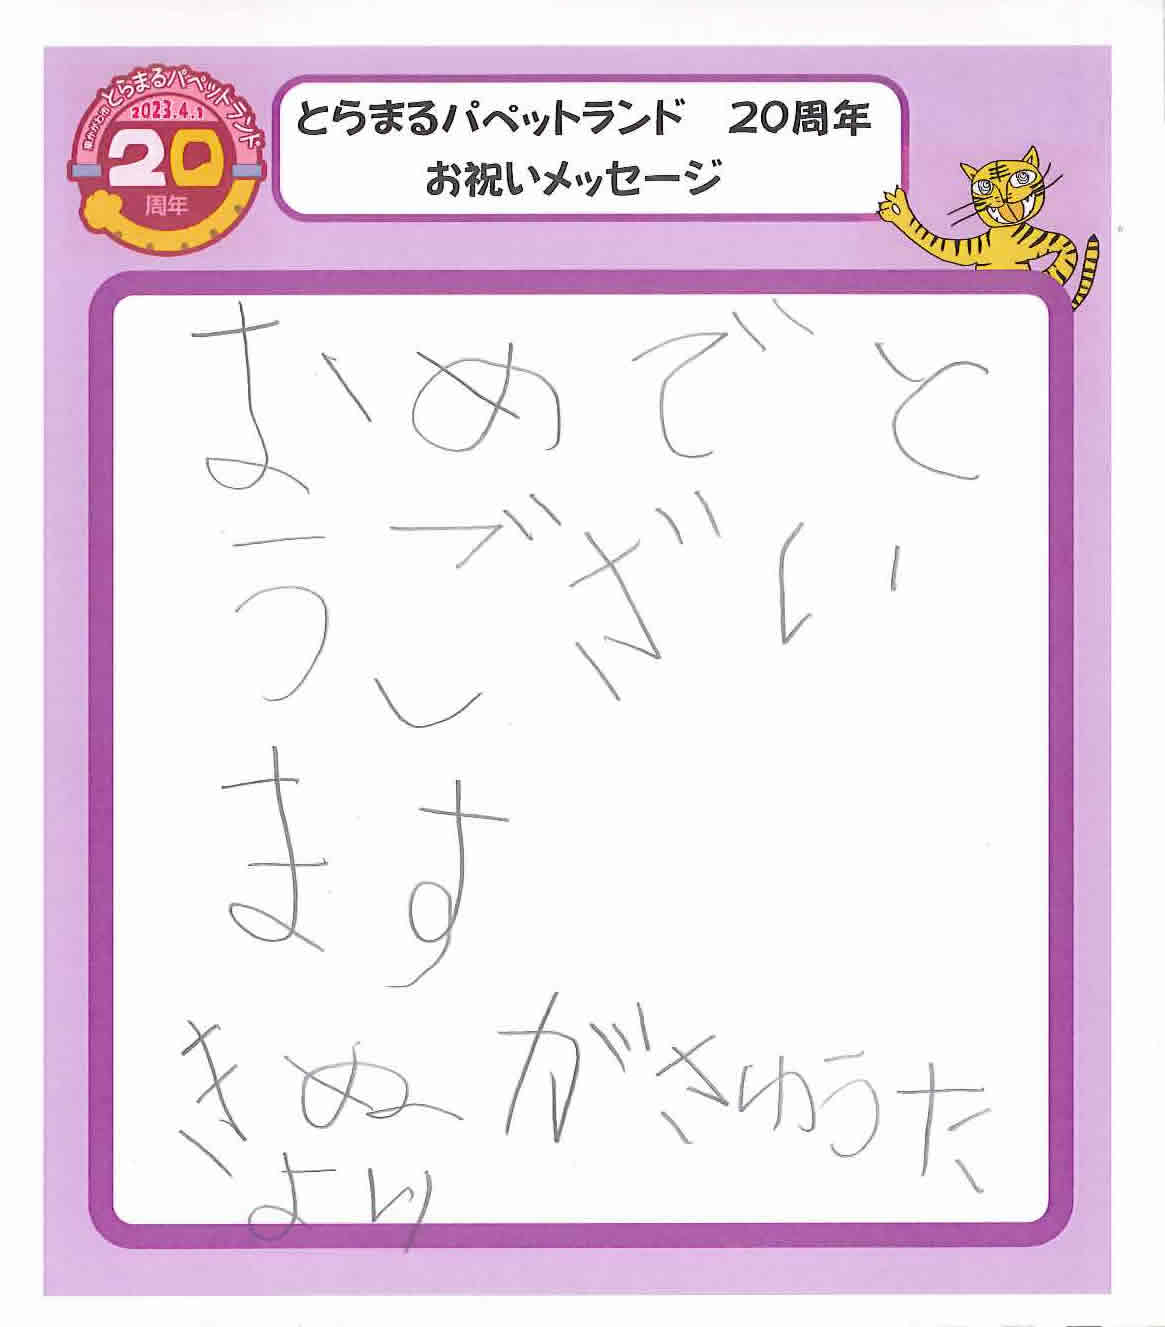 東かがわ市とらまるパペットランド
2023.4.1
20
周年
とらまるパペットランド 20周年
お祝いメッセージ
おめでと
うござい
ます
きぬがさゆうた
より